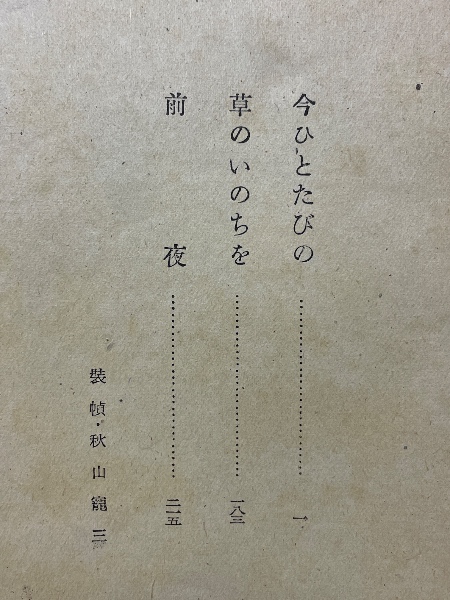 今ひとたびの……………………一
草のいのちを……………………一八三
前夜……………………二一五
裝幀・秋山寵三